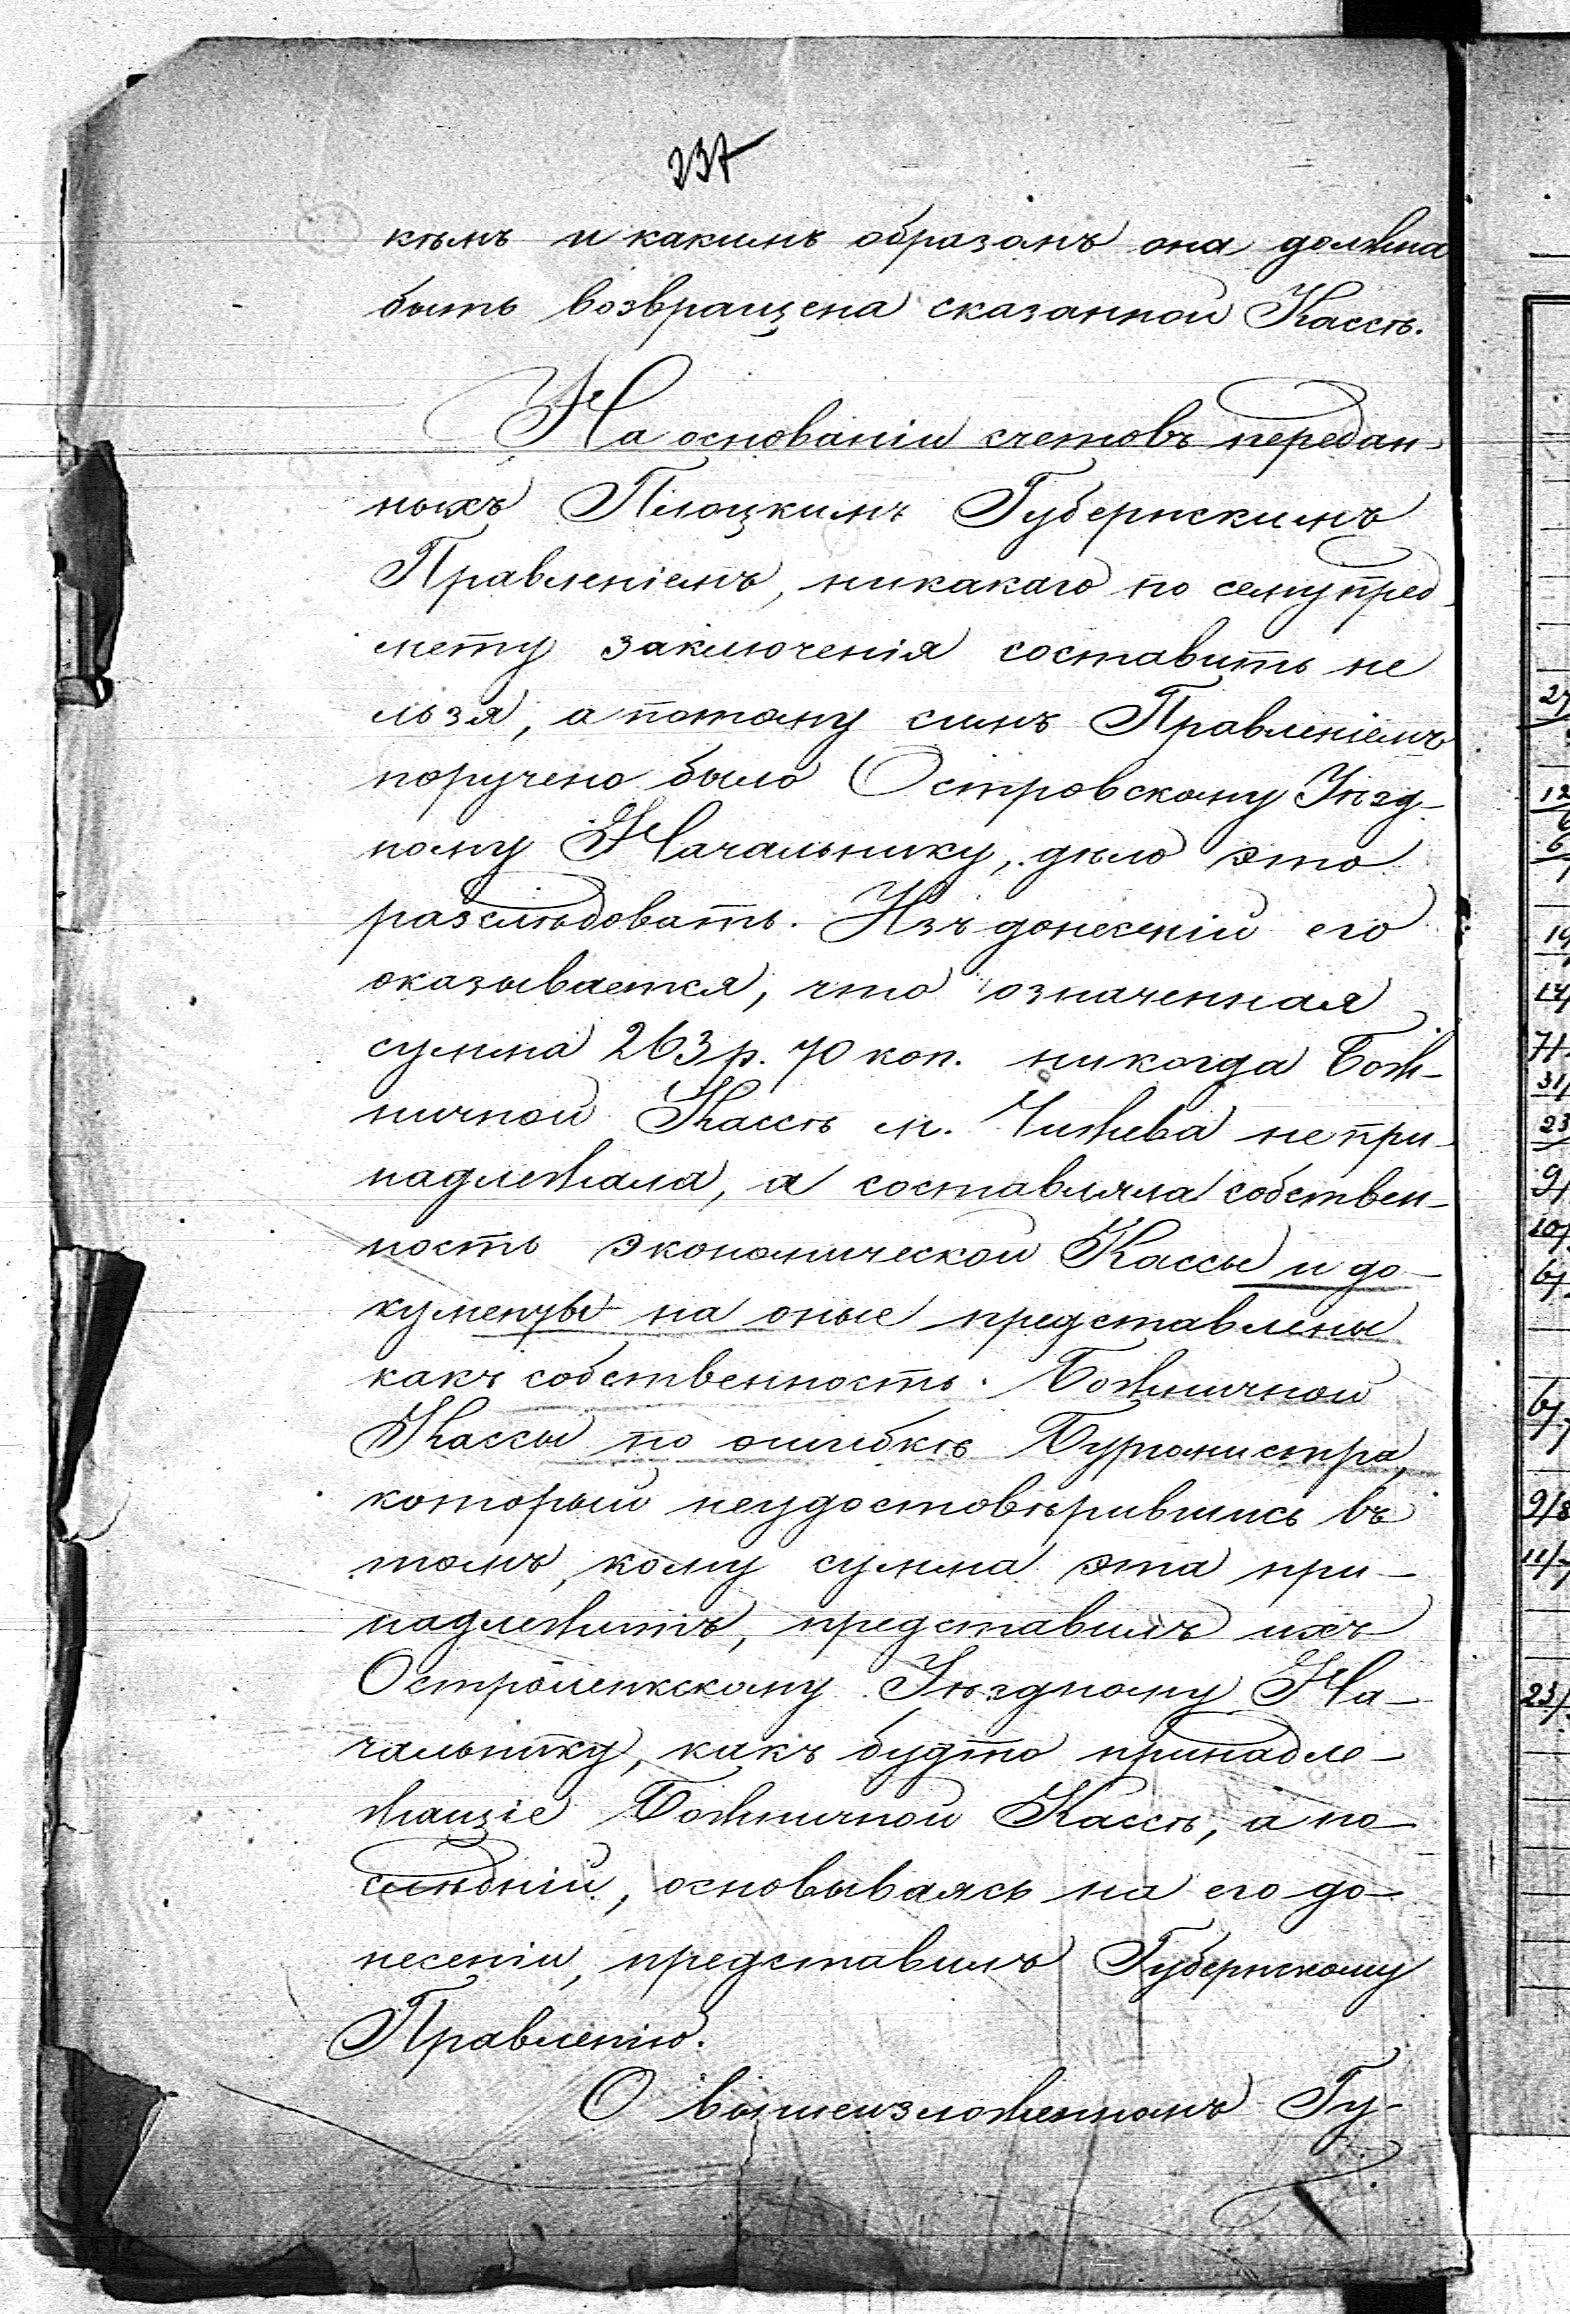 237
кѣмъ и какимъ образомъ она должна
быть возвращена сказанной Кассѣ.
На основаніи счетовъ передан-
ныхъ Плоцкимъ Губернскимъ
Правленіемъ, никакаго по сему пред-
мету заключенія составить не
льзя, а потому симъ Правленіемъ
поручено было Островскому Уѣзд-
ному Начальнику, дѣло это
разслѣдовать. Изъ донесеній его
оказывается, что означенная
сумма 263 р. 70 коп. никогда Бож-
ничной Кассѣ м. Чижева не при-
надлежала, а составляла собствен-
ность экономической Кассы и до-
кументы на оные представлены
какъ собственность Божничной
Кассы по ошибкѣ Бургомистра,
который неудостовѣрившись въ
томъ, кому сумма эта при-
надлежитъ, представилъ ихъ
Остроленкскому Уѣздному На-
чальнику, какъ будто принадле-
жащіе Божничной Кассѣ, а по-
слѣдній, основываясь на его до-
несеніи, представилъ Губернскому
Правленію.
О вышеизложенномъ Гу-
27
12
6
19
17
71
31
23
9
10
6
6
9/8
11/7
23